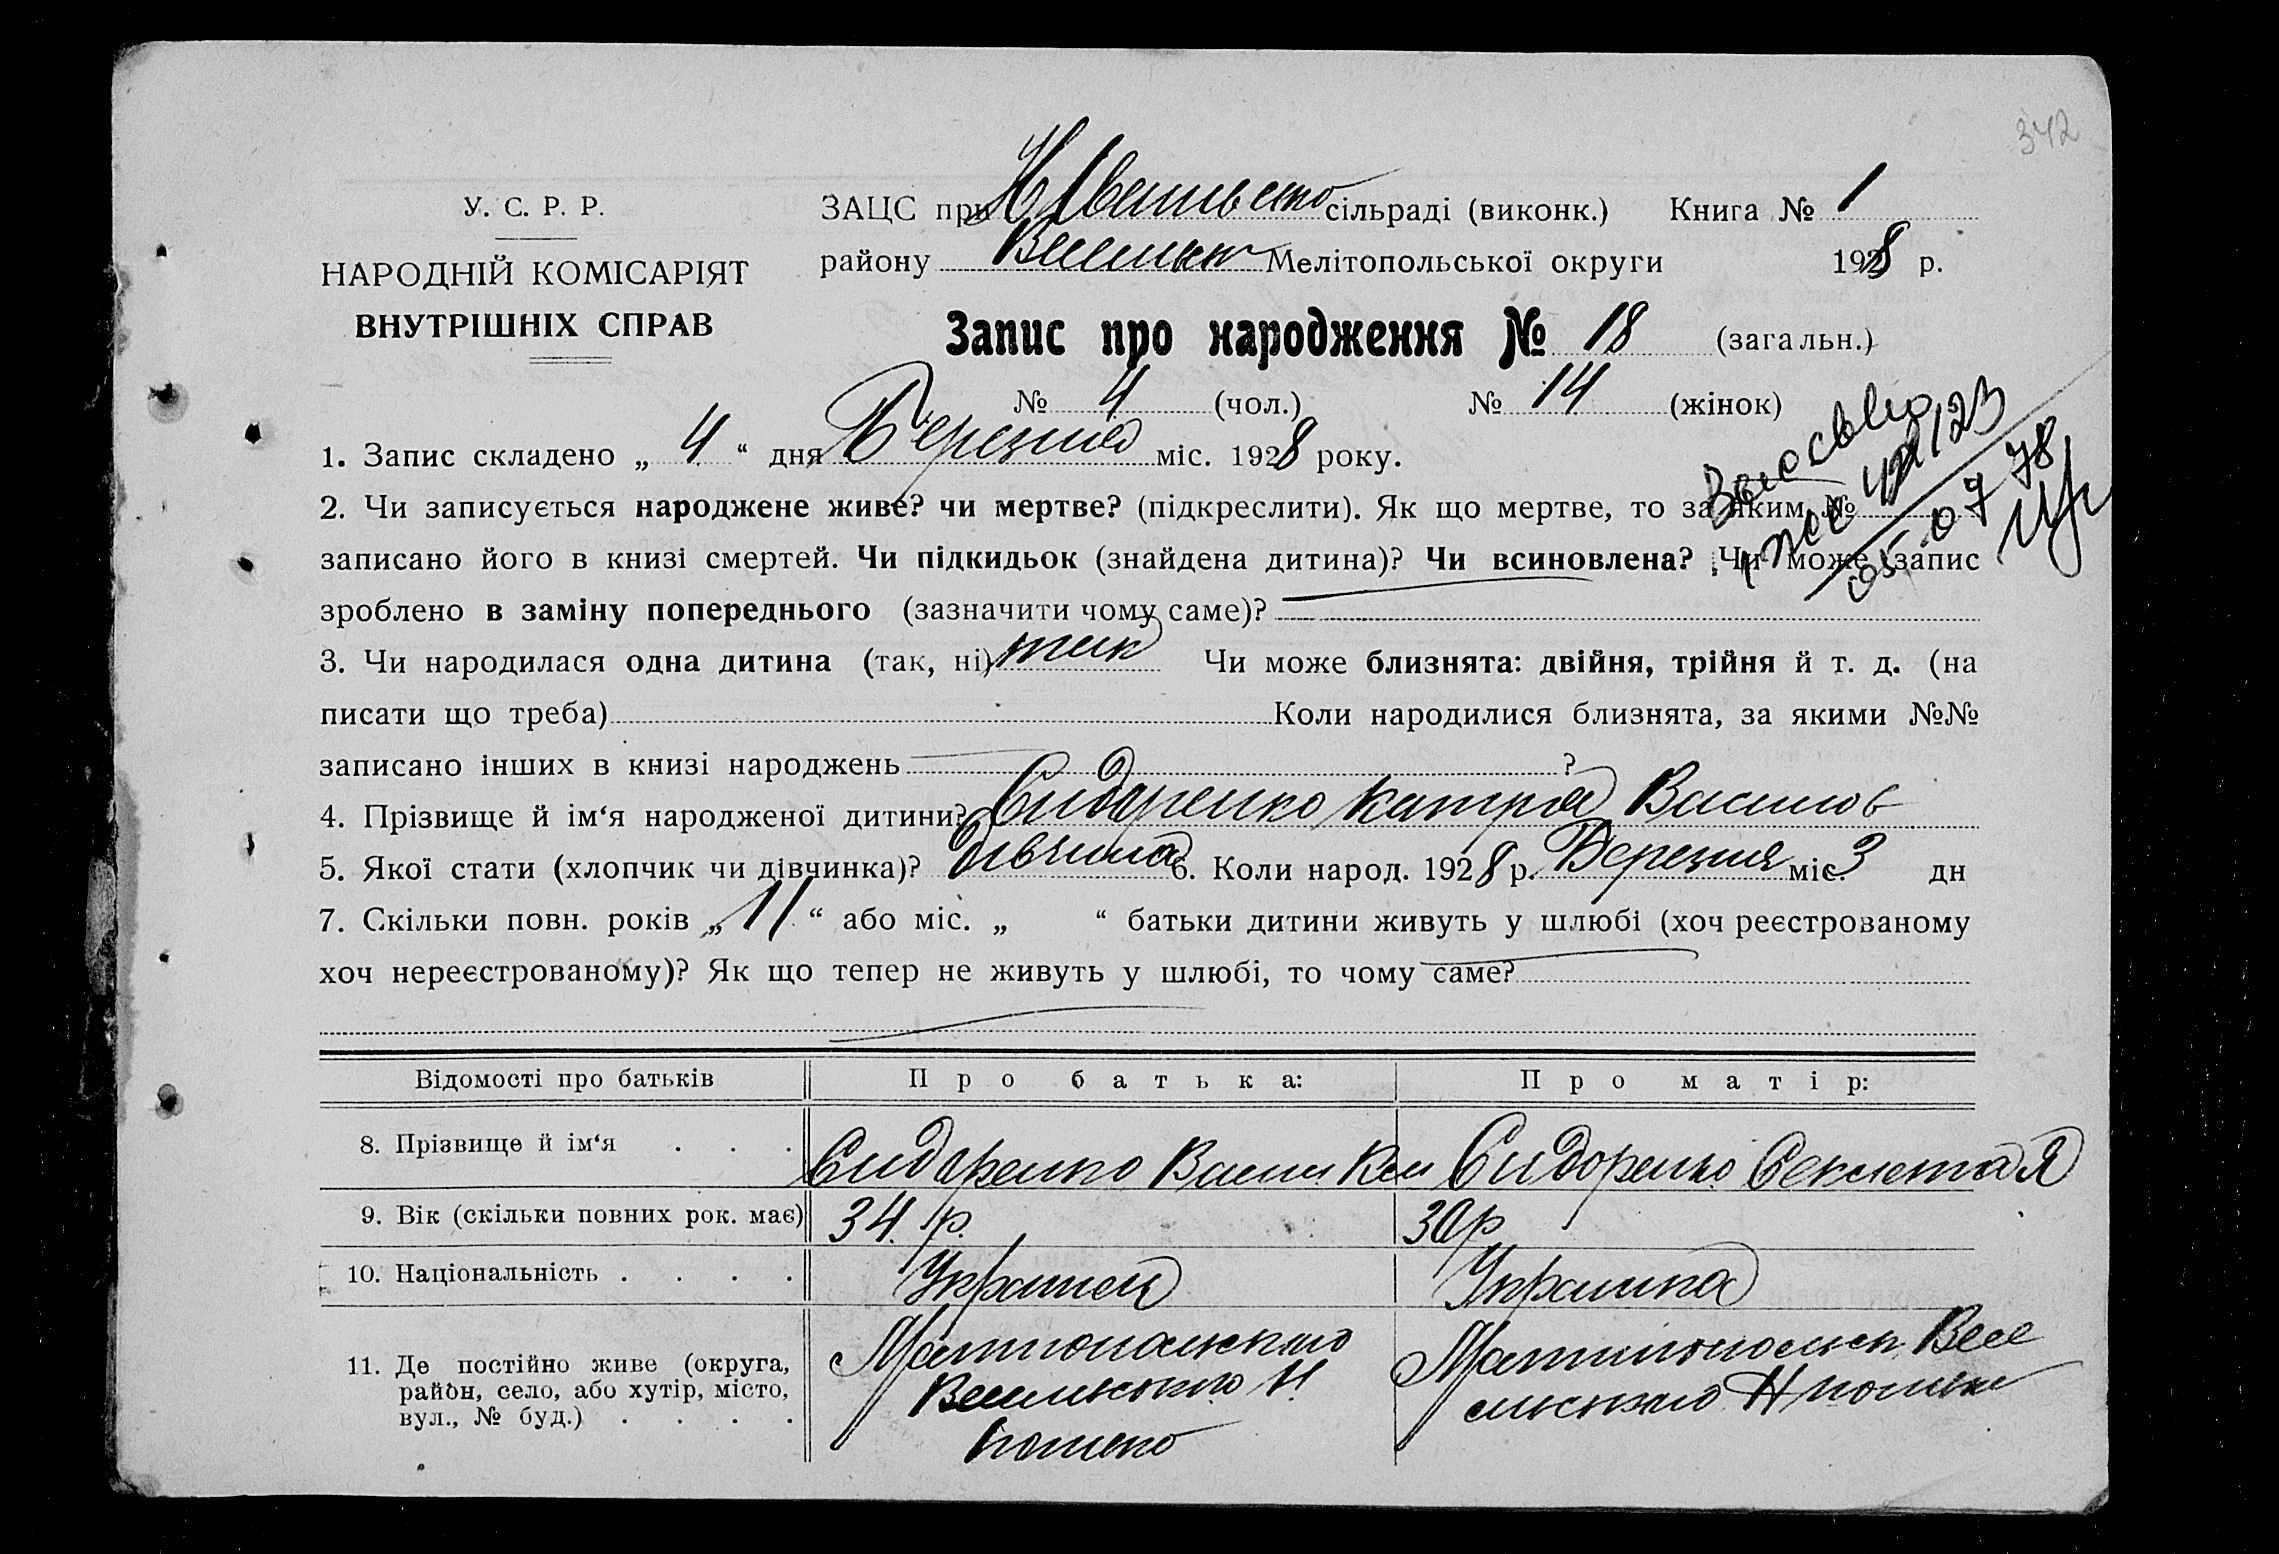 342
У. С. Р. Р.
НАРОДНІЙ КОМІСАРІЯТ
ВНУТРІШНІХ СПРАВ
ЗАЦС при сільраді (виконк.) Книга № 1
району Мелітопольської округи 1928 р.
Запис про народження № 18 (загальн.)
№ 4 (чол.) № 14 (жінок)
1. Запис складено „ 4 “ дня Березня міс. 1928 року.
2. Чи записується народжене живе? чи мертве? (підкреслити). Як що мертве, то за яким №
записано його в книзі смертей. Чи підкидьок (знайдена дитина)? Чи всиновлена? Чи може запис
зроблено в заміну попереднього (зазначити чому саме)?
3. Чи народилася одна дитина (так, ні) так Чи може близнята: двійня, трійня й т. д. (на
писати що треба) Коли народилися близнята, за якими №№
записано інших в книзі народжень ?
4. Прізвище й ім‘я народженої дитини? Сидаренко Катря Василов
5. Якої стати (хлопчик чи дівчинка)? дівчина 6. Коли народ. 1928 р. Березня міс. 3 дн
7. Скільки повн. років „ 11 “ або міс. „ “ батьки дитини живуть у шлюбі (хоч реєстрованому
хоч нереєстрованому)? Як що тепер не живуть у шлюбі, то чому саме?
Відомості про батьків Про батька: Про матір:
8. Прізвище й ім‘я . . . Сидаренко Васил Сидоренко Секлета Я
9. Вік (скільки повних рок. має) 34 р. 30 р
10. Національність . . . . Украінец Украинка
11. Де постійно живе (округа,
район, село, або хутір, місто,
вул., № буд.) . . . .